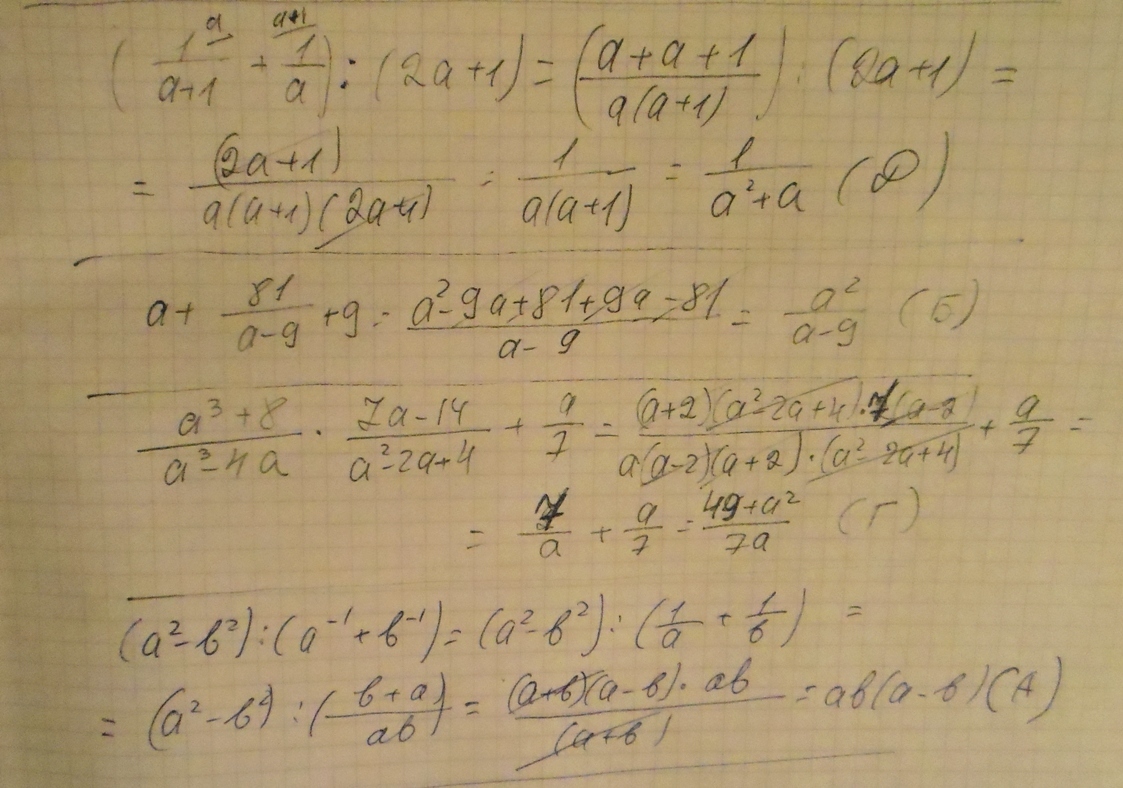 (1/(a+1) ᵃ + 1/a ᵃ⁺¹) : (2a+1) = ((a+a+1)/(a(a+1))) : (2a+1) =
= (2a+1)/(a(a+1)(2a+1)) = 1/(a(a+1)) = 1/(a²+a) (Д)
a + 81/(a-9) + 9 = (a²-9a+81+9a-81)/(a-9) = a²/(a-9) (Б)
(a³+8)/(a³-4a) · (7a-14)/(a²-2a+4) + a/7 = ((a+2)(a²-2a+4)·7(a-2))/(a(a-2)(a+2)·(a²-2a+4)) + a/7 =
= 7/a + a/7 = (49+a²)/(7a) (Г)
(a²-b²) : (a⁻¹+b⁻¹) = (a²-b²) : (1/a + 1/b) =
= (a²-b²) : ((b+a)/(ab)) = ((a+b)(a-b)·ab)/((a+b)) = ab(a-b) (А)